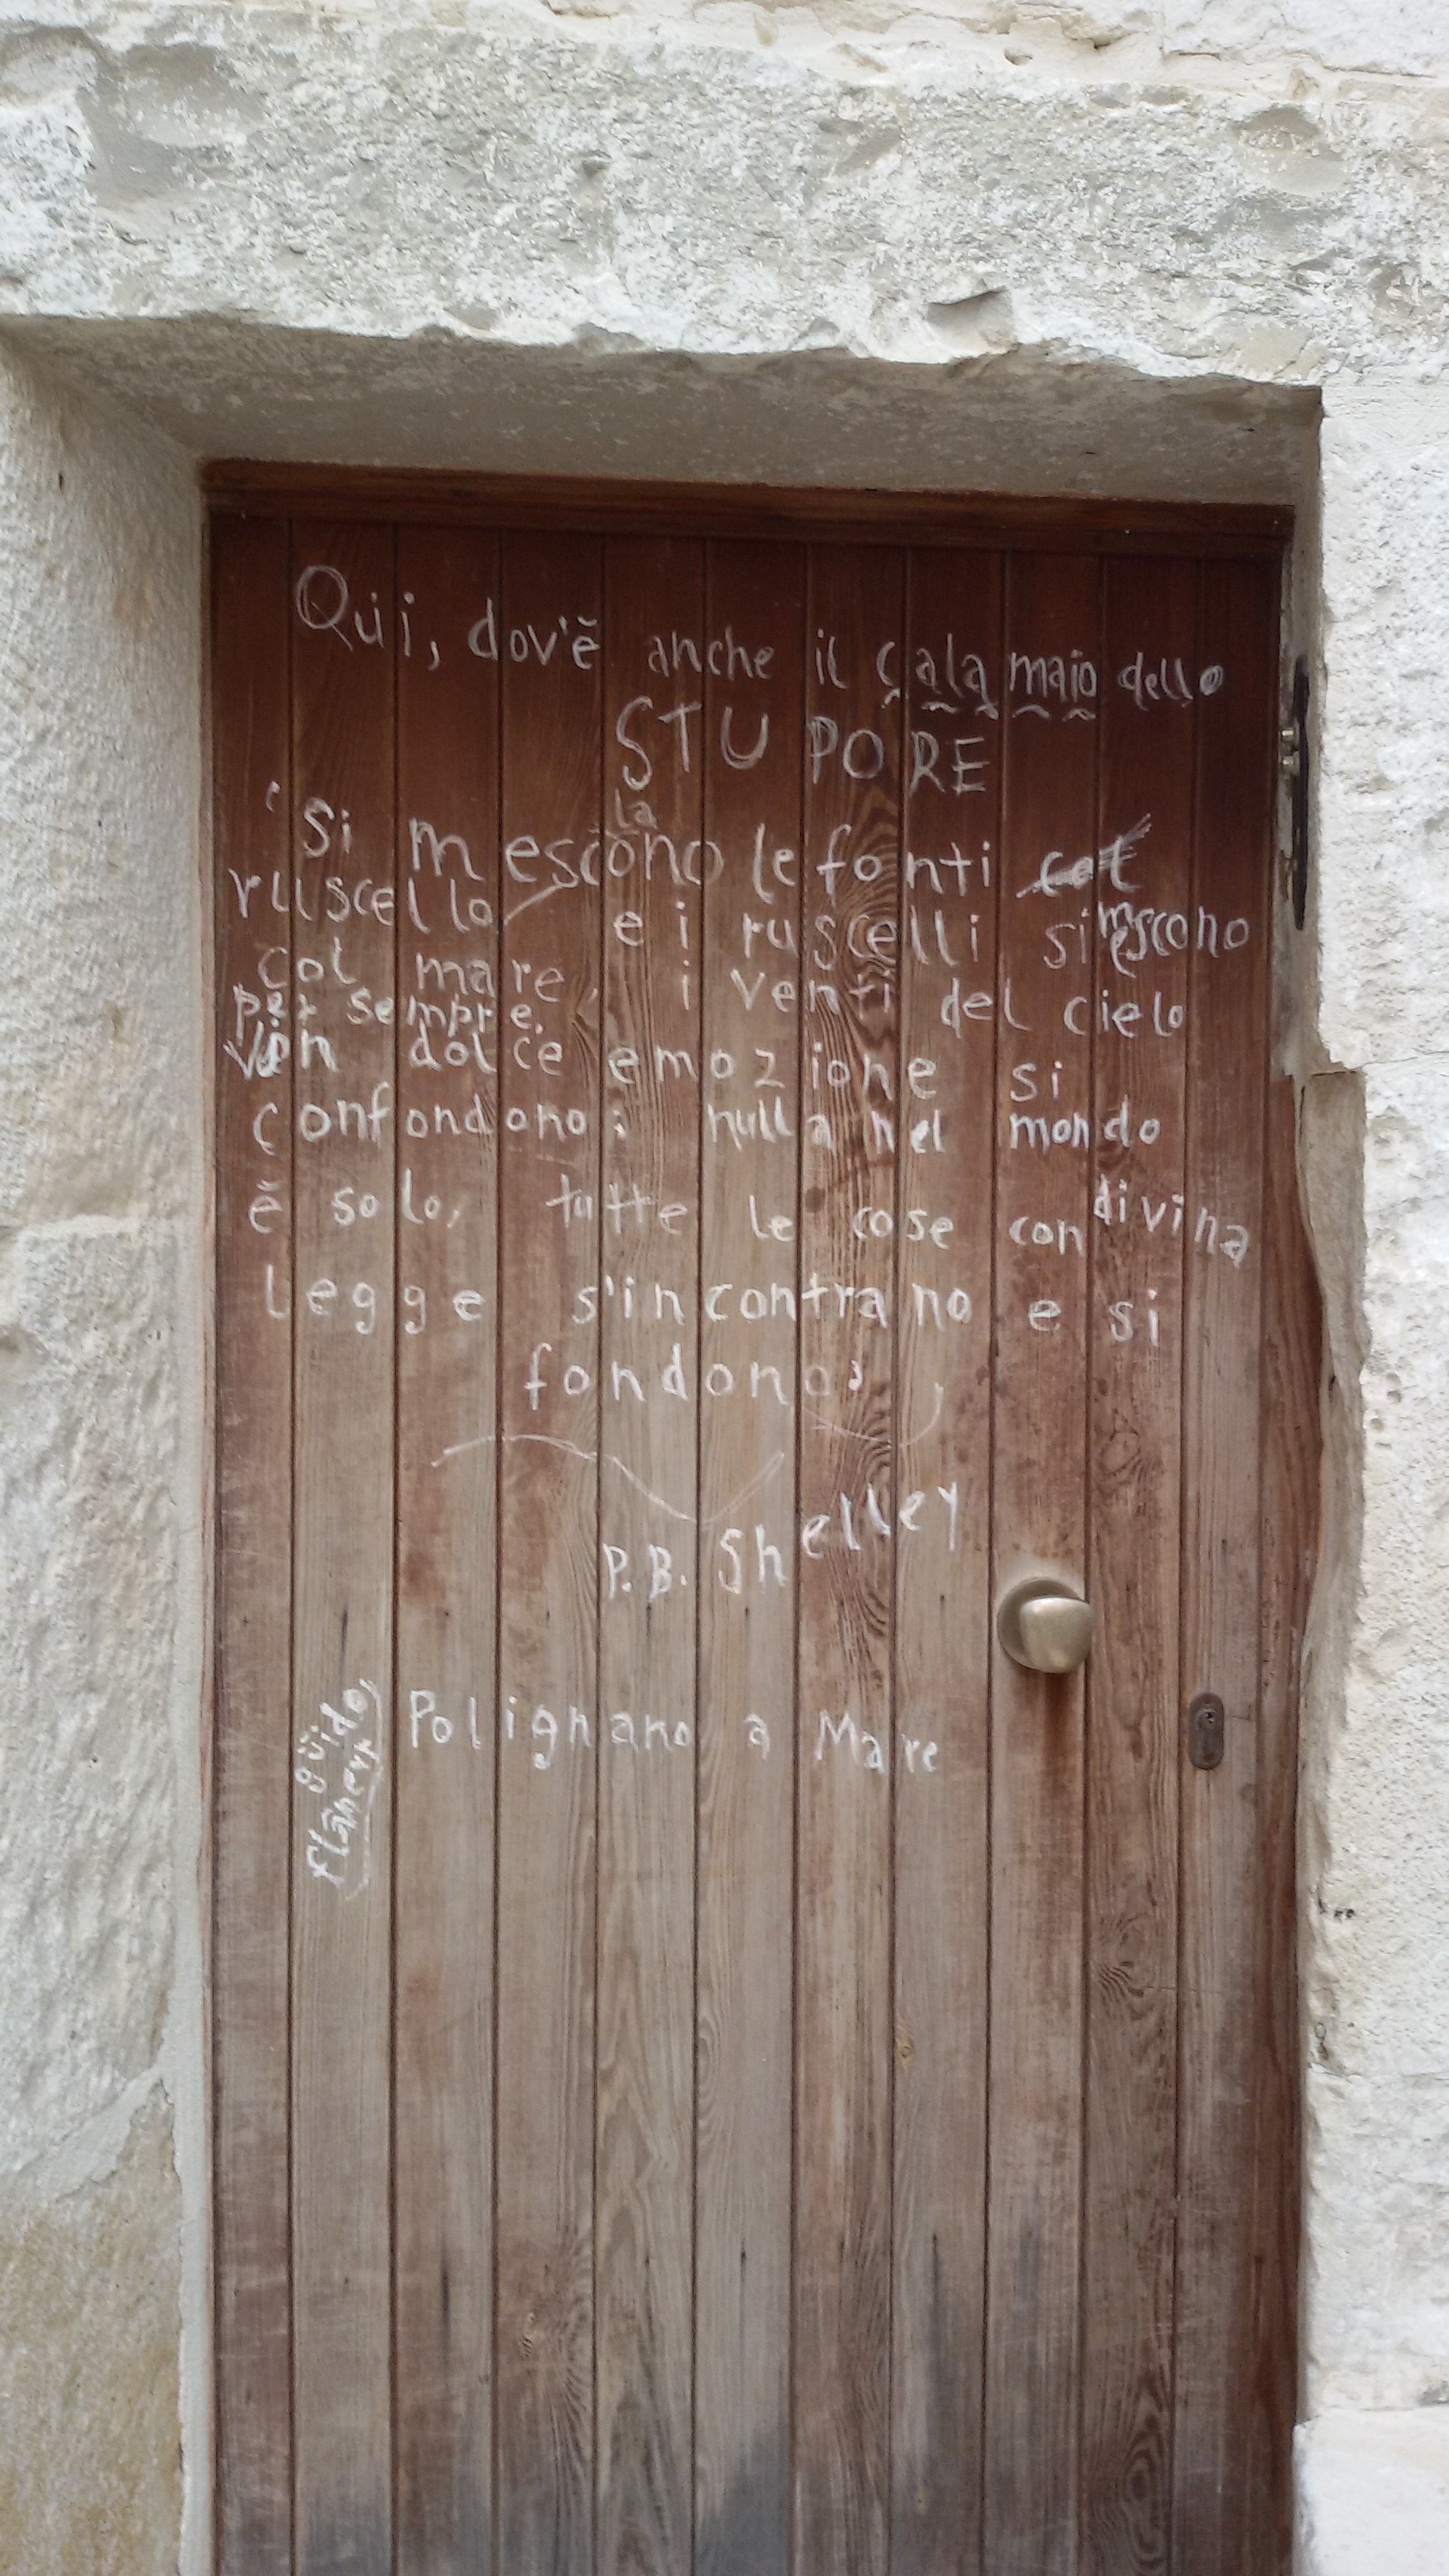 Qui, dov'è anche il Calamaio dello
STUPORE
"Si mescono le fonti col
ruscello e i ruscelli si mescono
col mare, i venti del cielo
per sempre.
in dolce emozione si
confondono: nulla nel mondo
è solo, tutte le cose con divina
legge s'incontrano e si
fondono
P.B. Shelley
Polignano a Mare
güido
flâneur